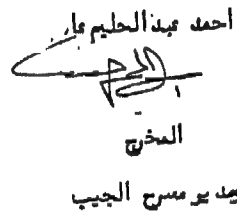 احمد عبد الحليم عامر
المخرج
مدير مسرح الجيب